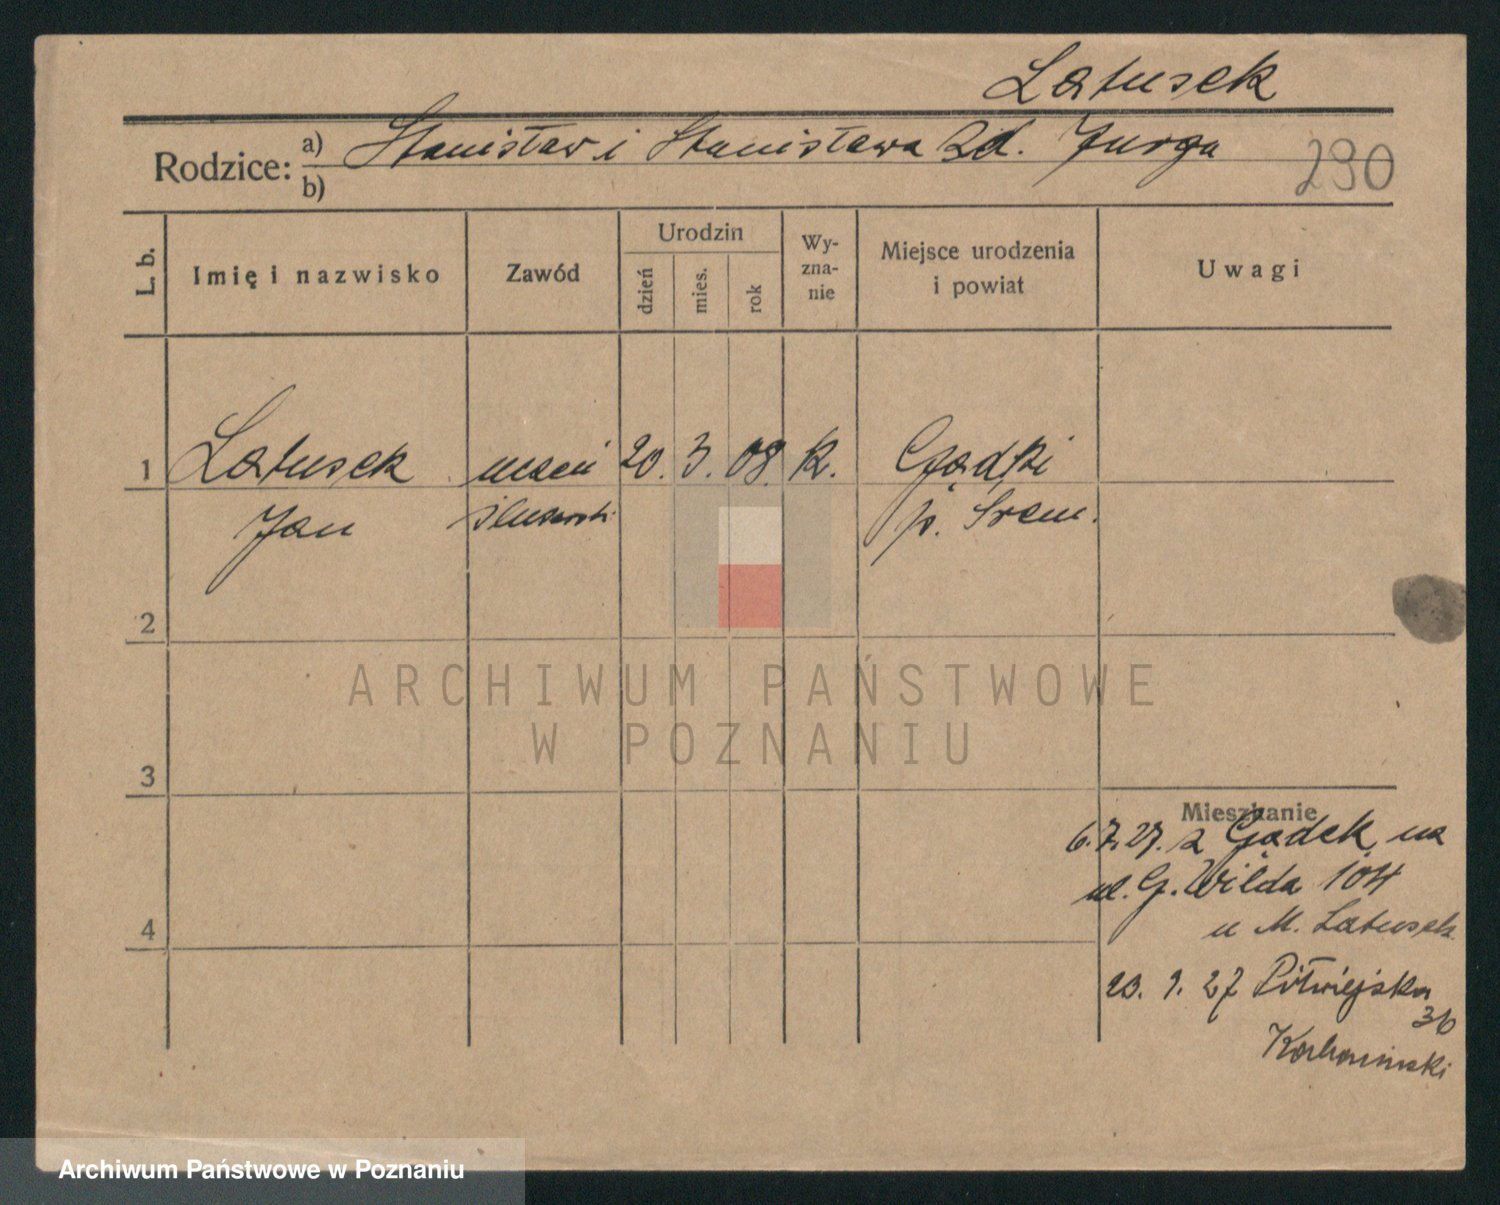 Latusek
Rodzice: a) Stanisław i Stanisława zd. Jurga
b)
290
L. b.
Imię i nazwisko
Zawód
Urodzin
dzień
mies.
rok
Wy-
zna-
nie
Miejsce urodzenia
i powiat
Uwagi
1 Latusek uczeń 20. 3. 08. k. Gądki
Jan ślusarski p. Śrem.
2
3
4
Mieszkanie
6.7.27. z Gądek na
ul. G. Wilda 104
u M. Latusek
23. 9. 27 Półwiejska
36
ARCHIWUM PAŃSTWOWE
W POZNANIU
Archiwum Państwowe w Poznaniu